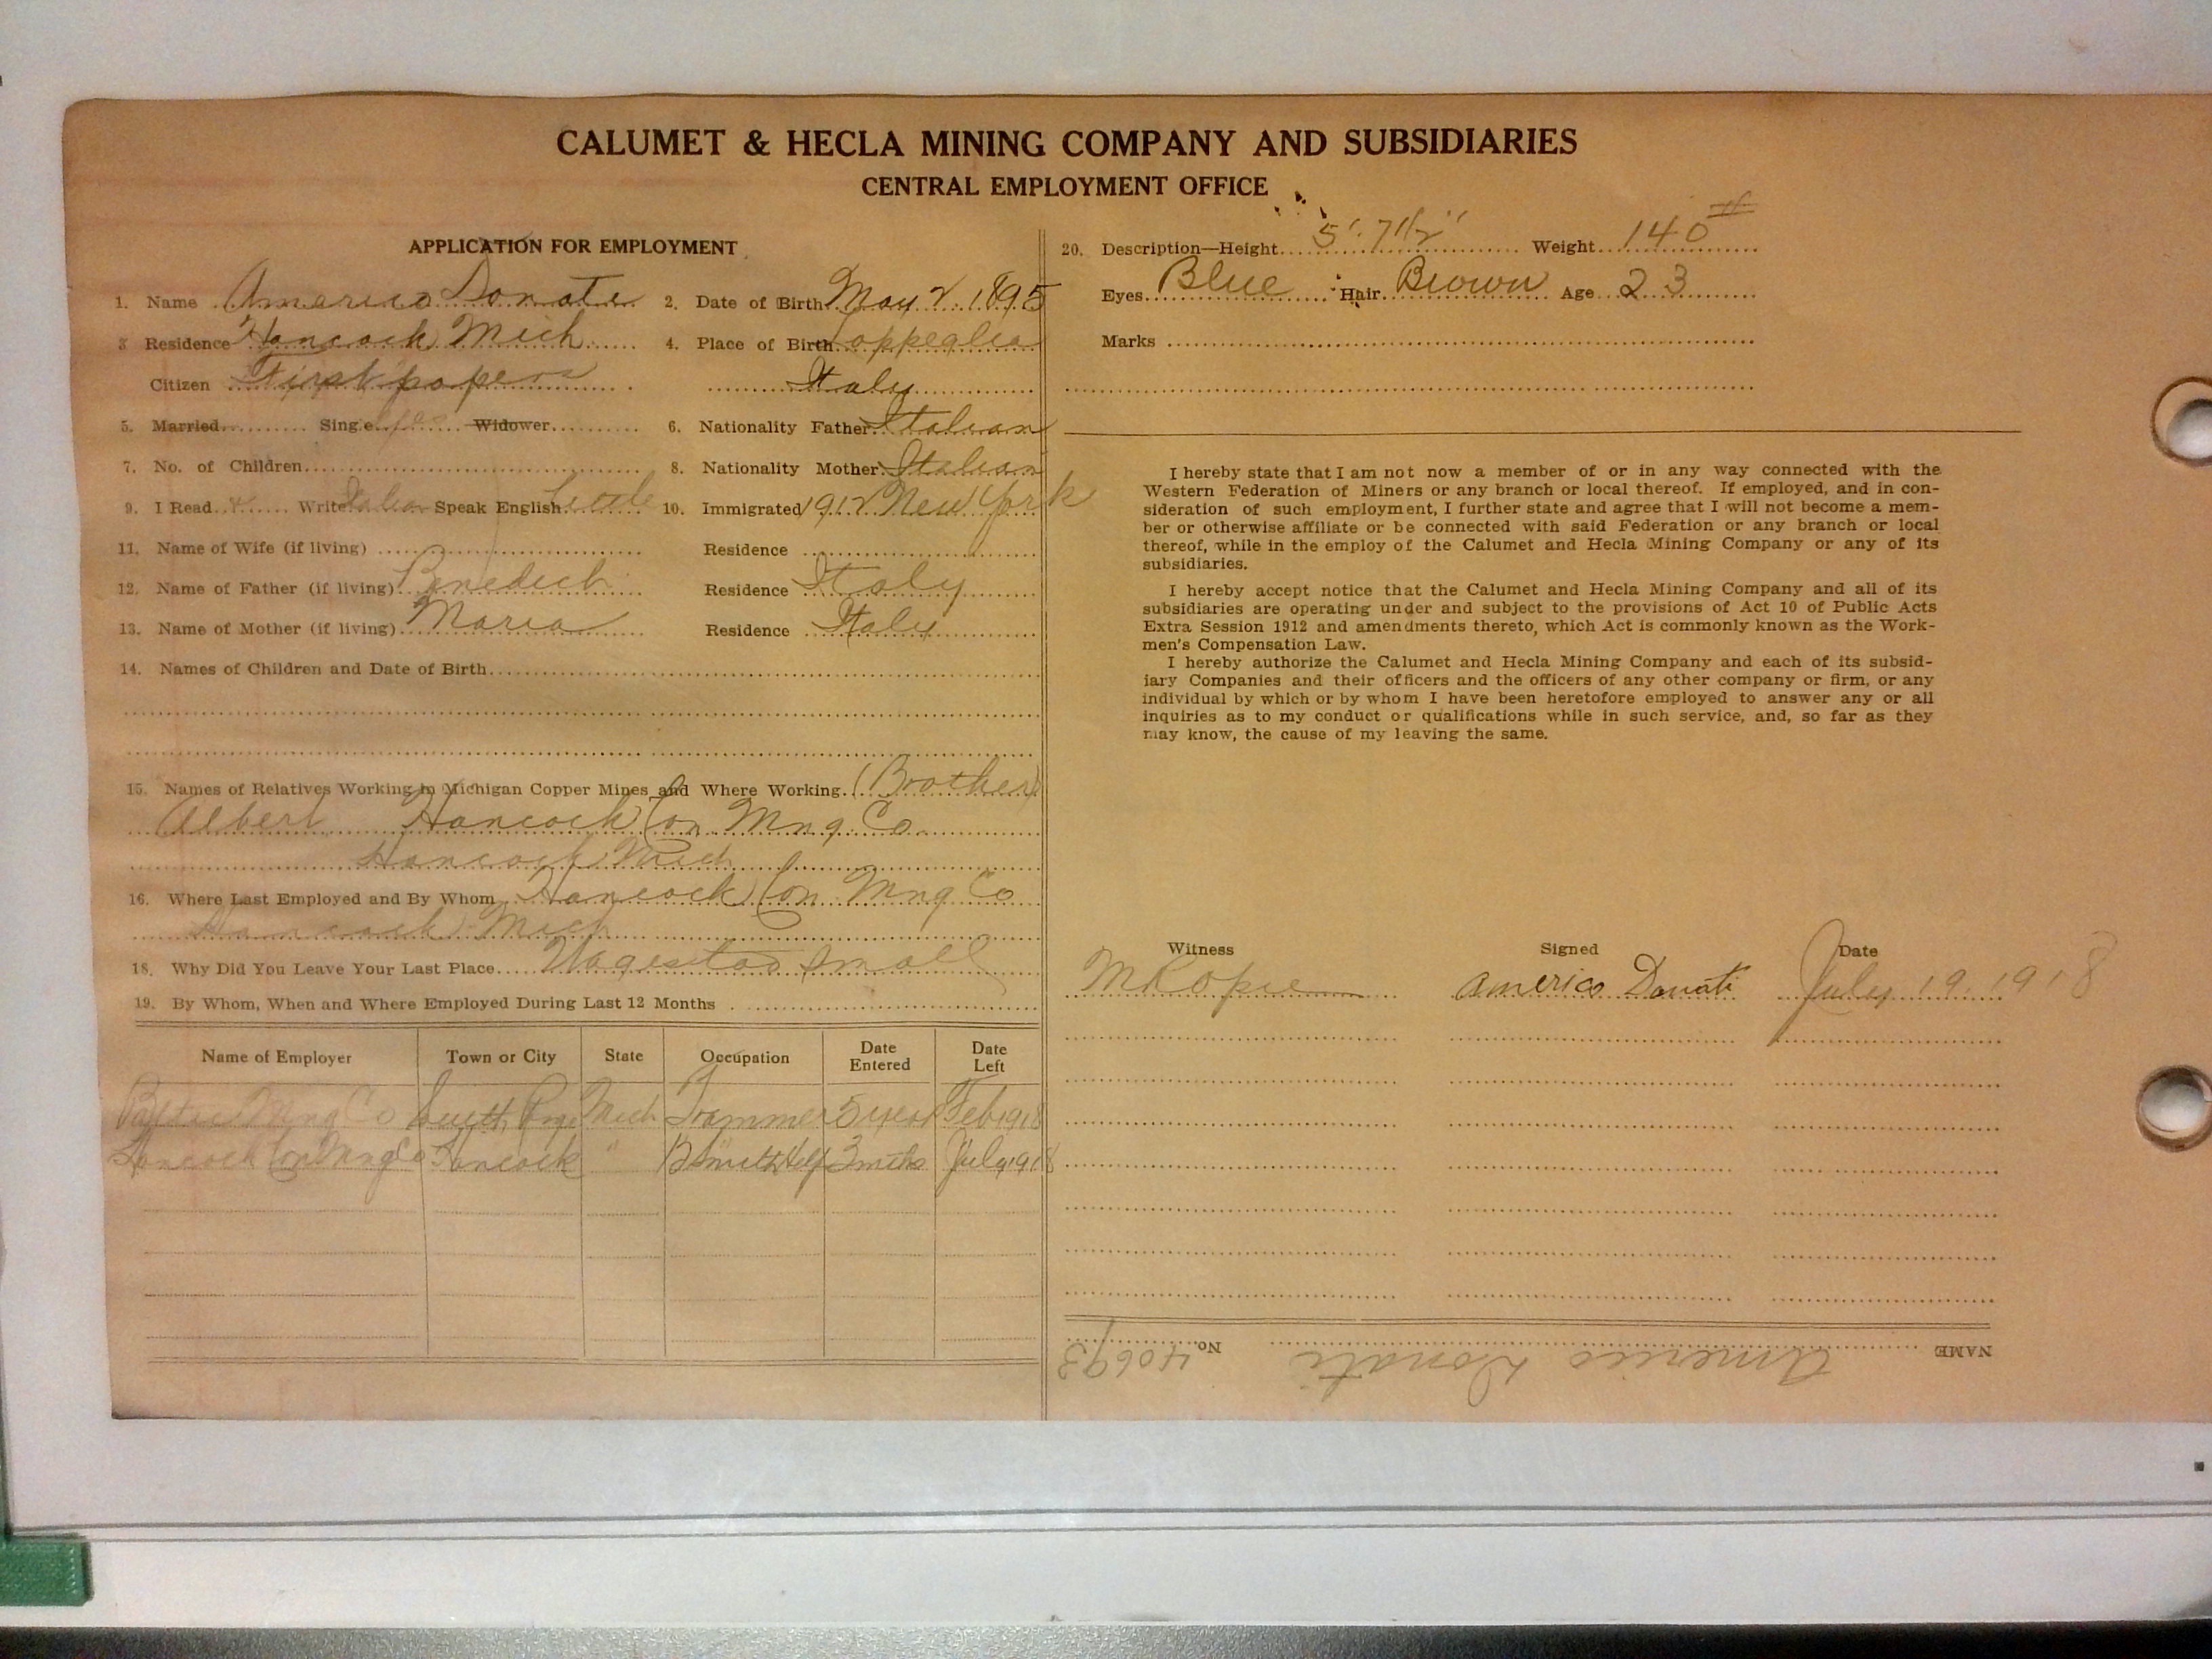 CALUMET & HECLA MINING COMPANY AND SUBSIDIARIES
CENTRAL EMPLOYMENT OFFICE
APPLICATION FOR EMPLOYMENT
1. Name Americo Donate 2. Date of Birth May 2. 1895
3 Residence Hancock Mich 4. Place of Birth Coppeglia
Citizen First papers Italy
5. Married Single yes Widower 6. Nationality Father Italian
7. No. of Children 8. Nationality Mother Italian
9. I Read & Write Italian Speak English Little 10. Immigrated 1912 New York
11. Name of Wife (if living) Residence
12. Name of Father (if living) Benedich Residence Italy
13. Name of Mother (if living) Maria Residence Italy
14. Names of Children and Date of Birth
15. Names of Relatives Working in Michigan Copper Mines and Where Working (Brother)
Albert Hancock Con Mng Co
Hancock Mich
16. Where Last Employed and By Whom Hancock Con Mng Co
Hancock Mich
18. Why Did You Leave Your Last Place Wages too small
19. By Whom, When and Where Employed During Last 12 Months
Name of Employer Town or City State Occupation Date Entered Date Left
Baltic Mng Co South Rge Mich Trammer 5 years Feb 1918
Hancock Con Mng Co Hancock " B Smith Help 3 mths July 1918
20. Description—Height 5' 7 1/2" Weight 140 #
Eyes Blue Hair Brown Age 23
Marks
I hereby state that I am not now a member of or in any way connected with the
Western Federation of Miners or any branch or local thereof. If employed, and in con-
sideration of such employment, I further state and agree that I will not become a mem-
ber or otherwise affiliate or be connected with said Federation or any branch or local
thereof, while in the employ of the Calumet and Hecla Mining Company or any of its
subsidiaries.
I hereby accept notice that the Calumet and Hecla Mining Company and all of its
subsidiaries are operating under and subject to the provisions of Act 10 of Public Acts
Extra Session 1912 and amendments thereto, which Act is commonly known as the Work-
men's Compensation Law.
I hereby authorize the Calumet and Hecla Mining Company and each of its subsid-
iary Companies and their officers and the officers of any other company or firm, or any
individual by which or by whom I have been heretofore employed to answer any or all
inquiries as to my conduct or qualifications while in such service, and, so far as they
may know, the cause of my leaving the same.
Witness Signed Date
Americo Donati July 19. 1918
NAME Americo Donati No. 40693